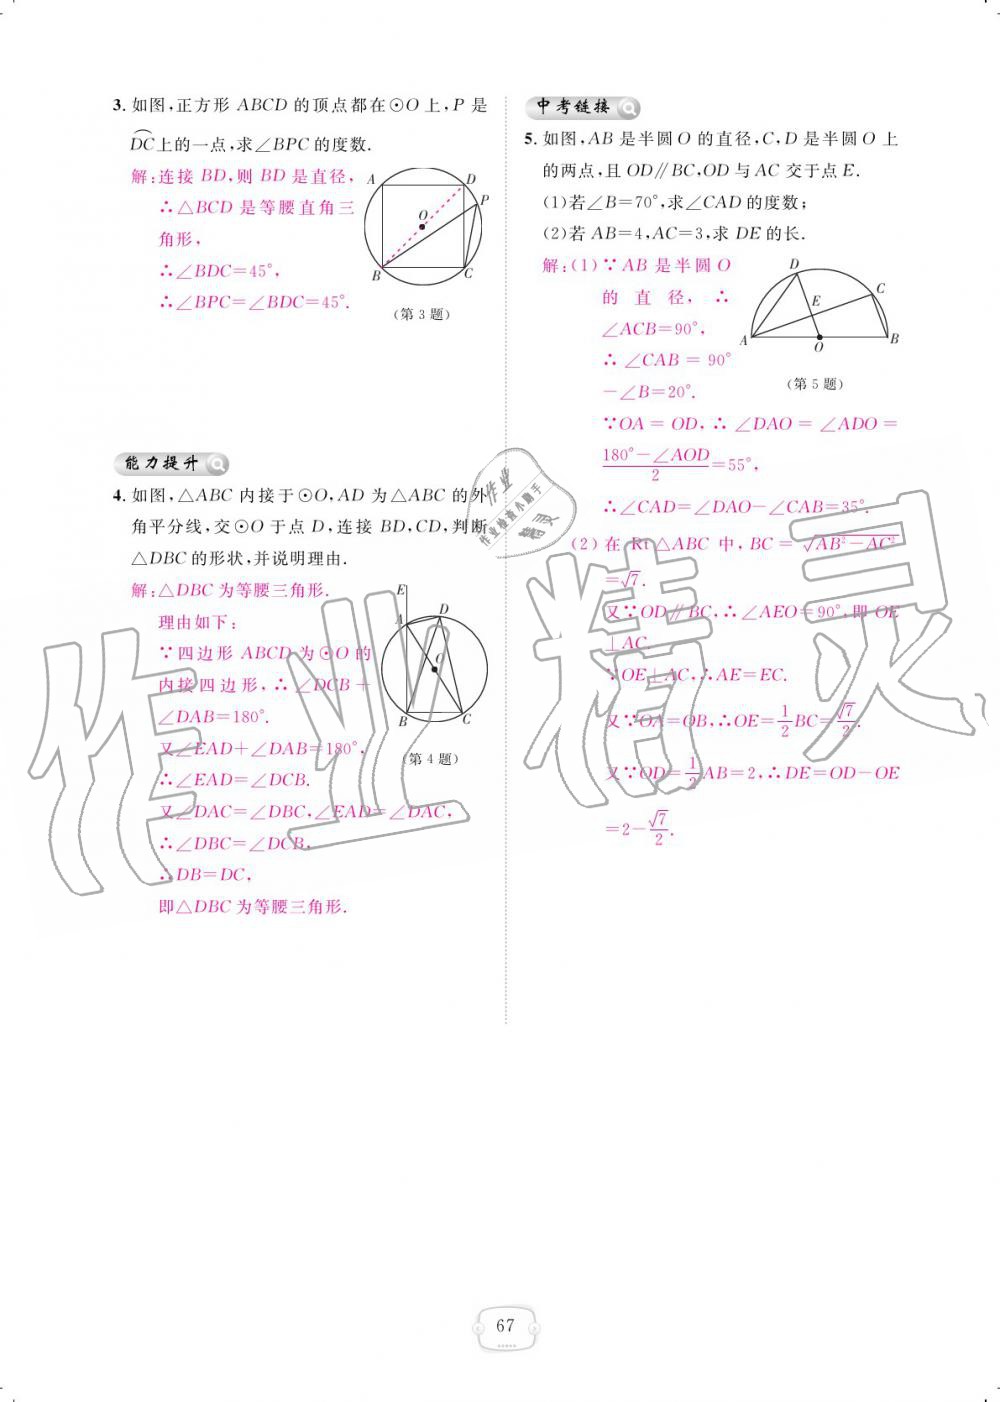 3. 如图,正方形 ABCD 的顶点都在⊙O 上,P 是
DC上的一点,求∠BPC 的度数.
解:连接 BD,则 BD 是直径,
∴△BCD 是等腰直角三
角形,
∴∠BDC=45°,
∴∠BPC=∠BDC=45°.
A
D
P
O
B
C
(第 3 题)
能力提升
4. 如图,△ABC 内接于⊙O,AD 为△ABC 的外
角平分线,交⊙O 于点 D,连接 BD,CD,判断
△DBC 的形状,并说明理由.
解:△DBC 为等腰三角形.
理由如下:
∵四边形 ABCD 为⊙O 的
内接四边形,∴∠DCB+
∠DAB=180°.
又∠EAD+∠DAB=180°,
∴∠EAD=∠DCB.
又∠DAC=∠DBC,∠EAD=∠DAC,
∴∠DBC=∠DCB,
∴DB=DC,
即△DBC 为等腰三角形.
E
A
D
O
B
C
(第 4 题)
中考链接
5. 如图,AB 是半圆 O 的直径,C,D 是半圆 O 上
的两点,且 OD∥BC,OD 与 AC 交于点 E.
(1)若∠B=70°,求∠CAD 的度数;
(2)若 AB=4,AC=3,求 DE 的长.
解:(1)∵AB 是半圆 O
的直径,∴
∠ACB=90°,
∴∠CAB=90°
-∠B=20°.
∵OA=OD,∴∠DAO=∠ADO=
180°-∠AOD/2=55°,
∴∠CAD=∠DAO-∠CAB=35°.
(2)在 Rt△ABC 中,BC=√AB²-AC²
=√7.
又∵OD∥BC,∴∠AEO=90°,即 OE
⊥AC.
∵OE⊥AC,∴AE=EC.
又∵OA=OB,∴OE=1/2BC=√7/2.
又∵OD=1/2AB=2,∴DE=OD-OE
=2-√7/2.
D
C
E
A
O
B
(第 5 题)
作业
作业检查小助手
精灵
作业精灵
67